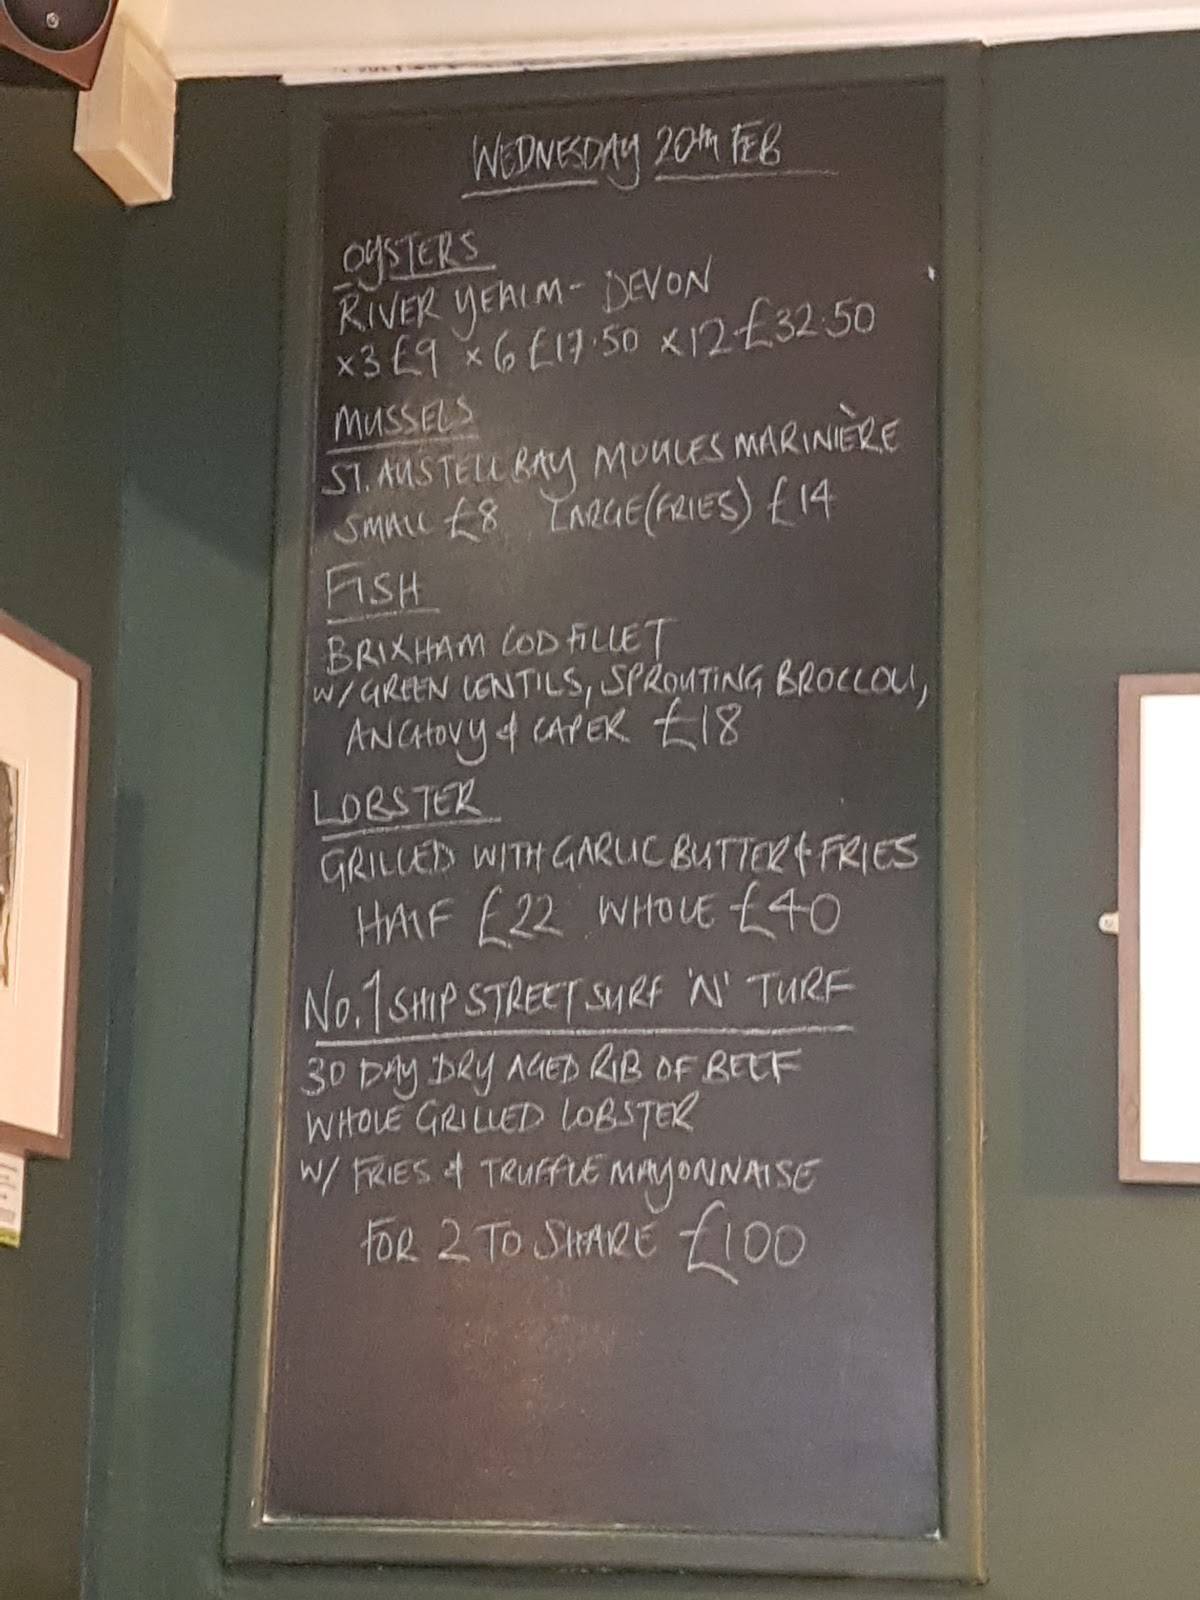 WEDNESDAY 20th FEB
OYSTERS
RIVER YEALM - DEVON
x3 £9 x6 £17.50 x12 £32.50
MUSSELS
ST. AUSTELL BAY MOULES MARINIÈRE
SMALL £8 LARGE (FRIES) £14
FISH
BRIXHAM COD FILLET
W/ GREEN LENTILS, SPROUTING BROCCOLI,
ANCHOVY & CAPER £18
LOBSTER
GRILLED WITH GARLIC BUTTER & FRIES
HALF £22 WHOLE £40
No.1 SHIP STREET SURF 'N' TURF
30 DAY DRY AGED RIB OF BEEF
WHOLE GRILLED LOBSTER
W/ FRIES & TRUFFLE MAYONNAISE
FOR 2 TO SHARE £100